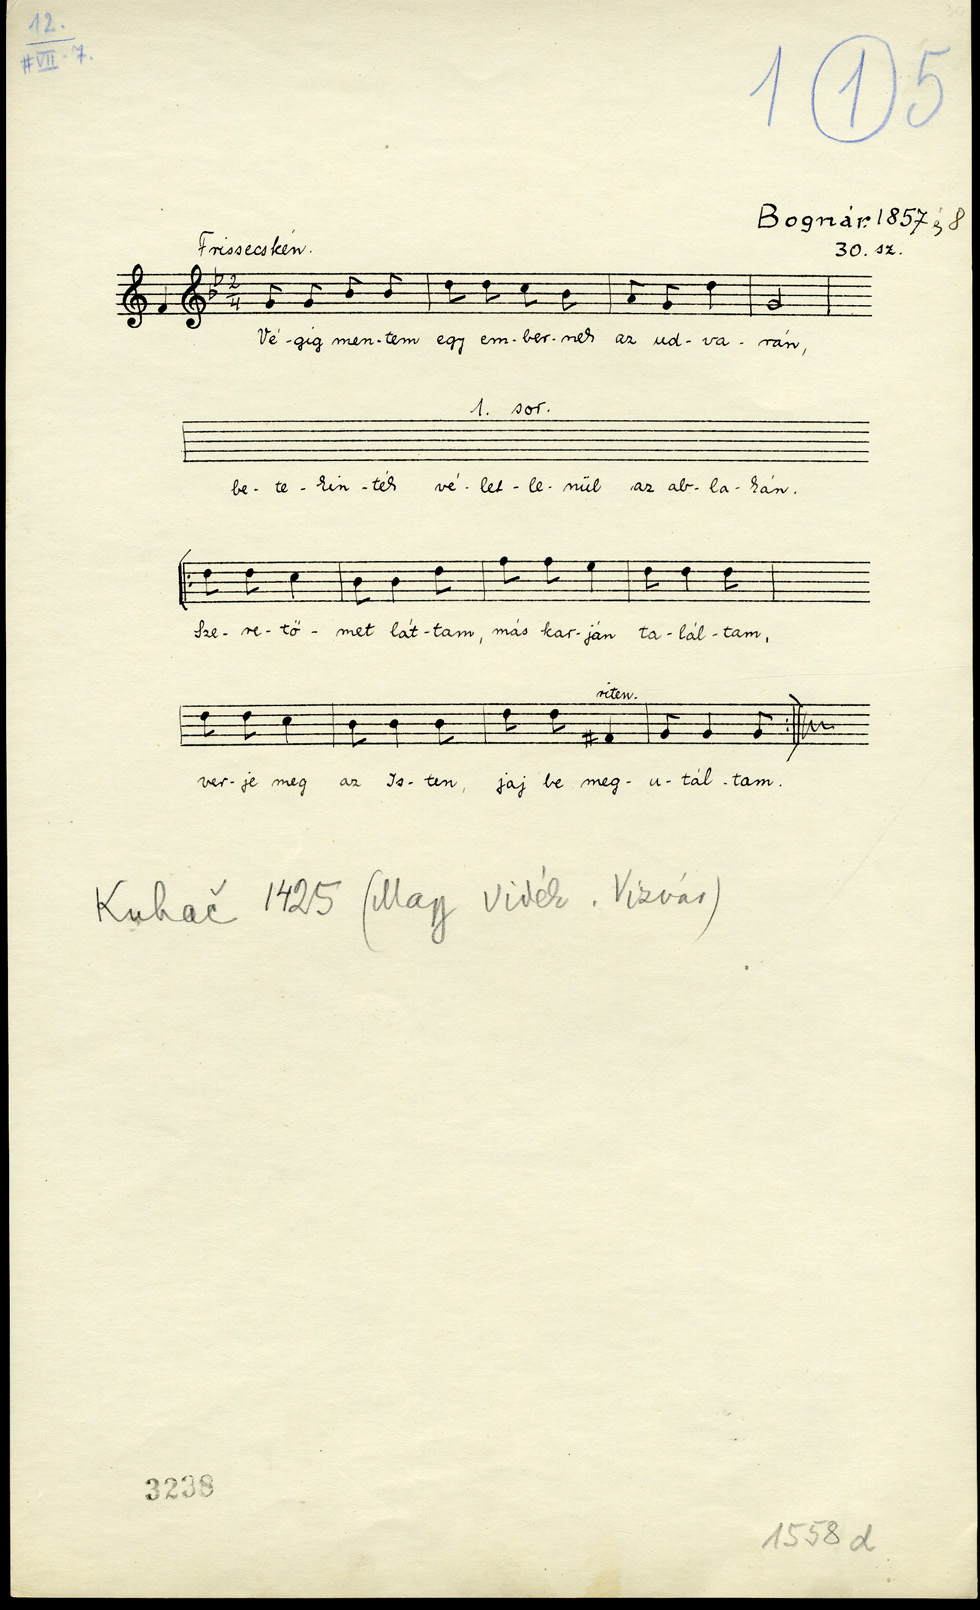 12.
#VII-7.
1 1 5
Bognár. 1857 és 8
30. sz.
Frissecskén.
2
4
Vé-gig men-tem egy em-ber-nek az ud-va-rán,
1. sor.
be-te-kin-ték vé-let-le-nül az ab-la-kán.
Sze-re-tő-met lát-tam, más kar-ján ta-lál-tam,
riten.
ver-je meg az Is-ten, jaj be meg-u-tál-tam.
Kuhač 1425 (Magy vidék. Vizvár)
3238
1558 d